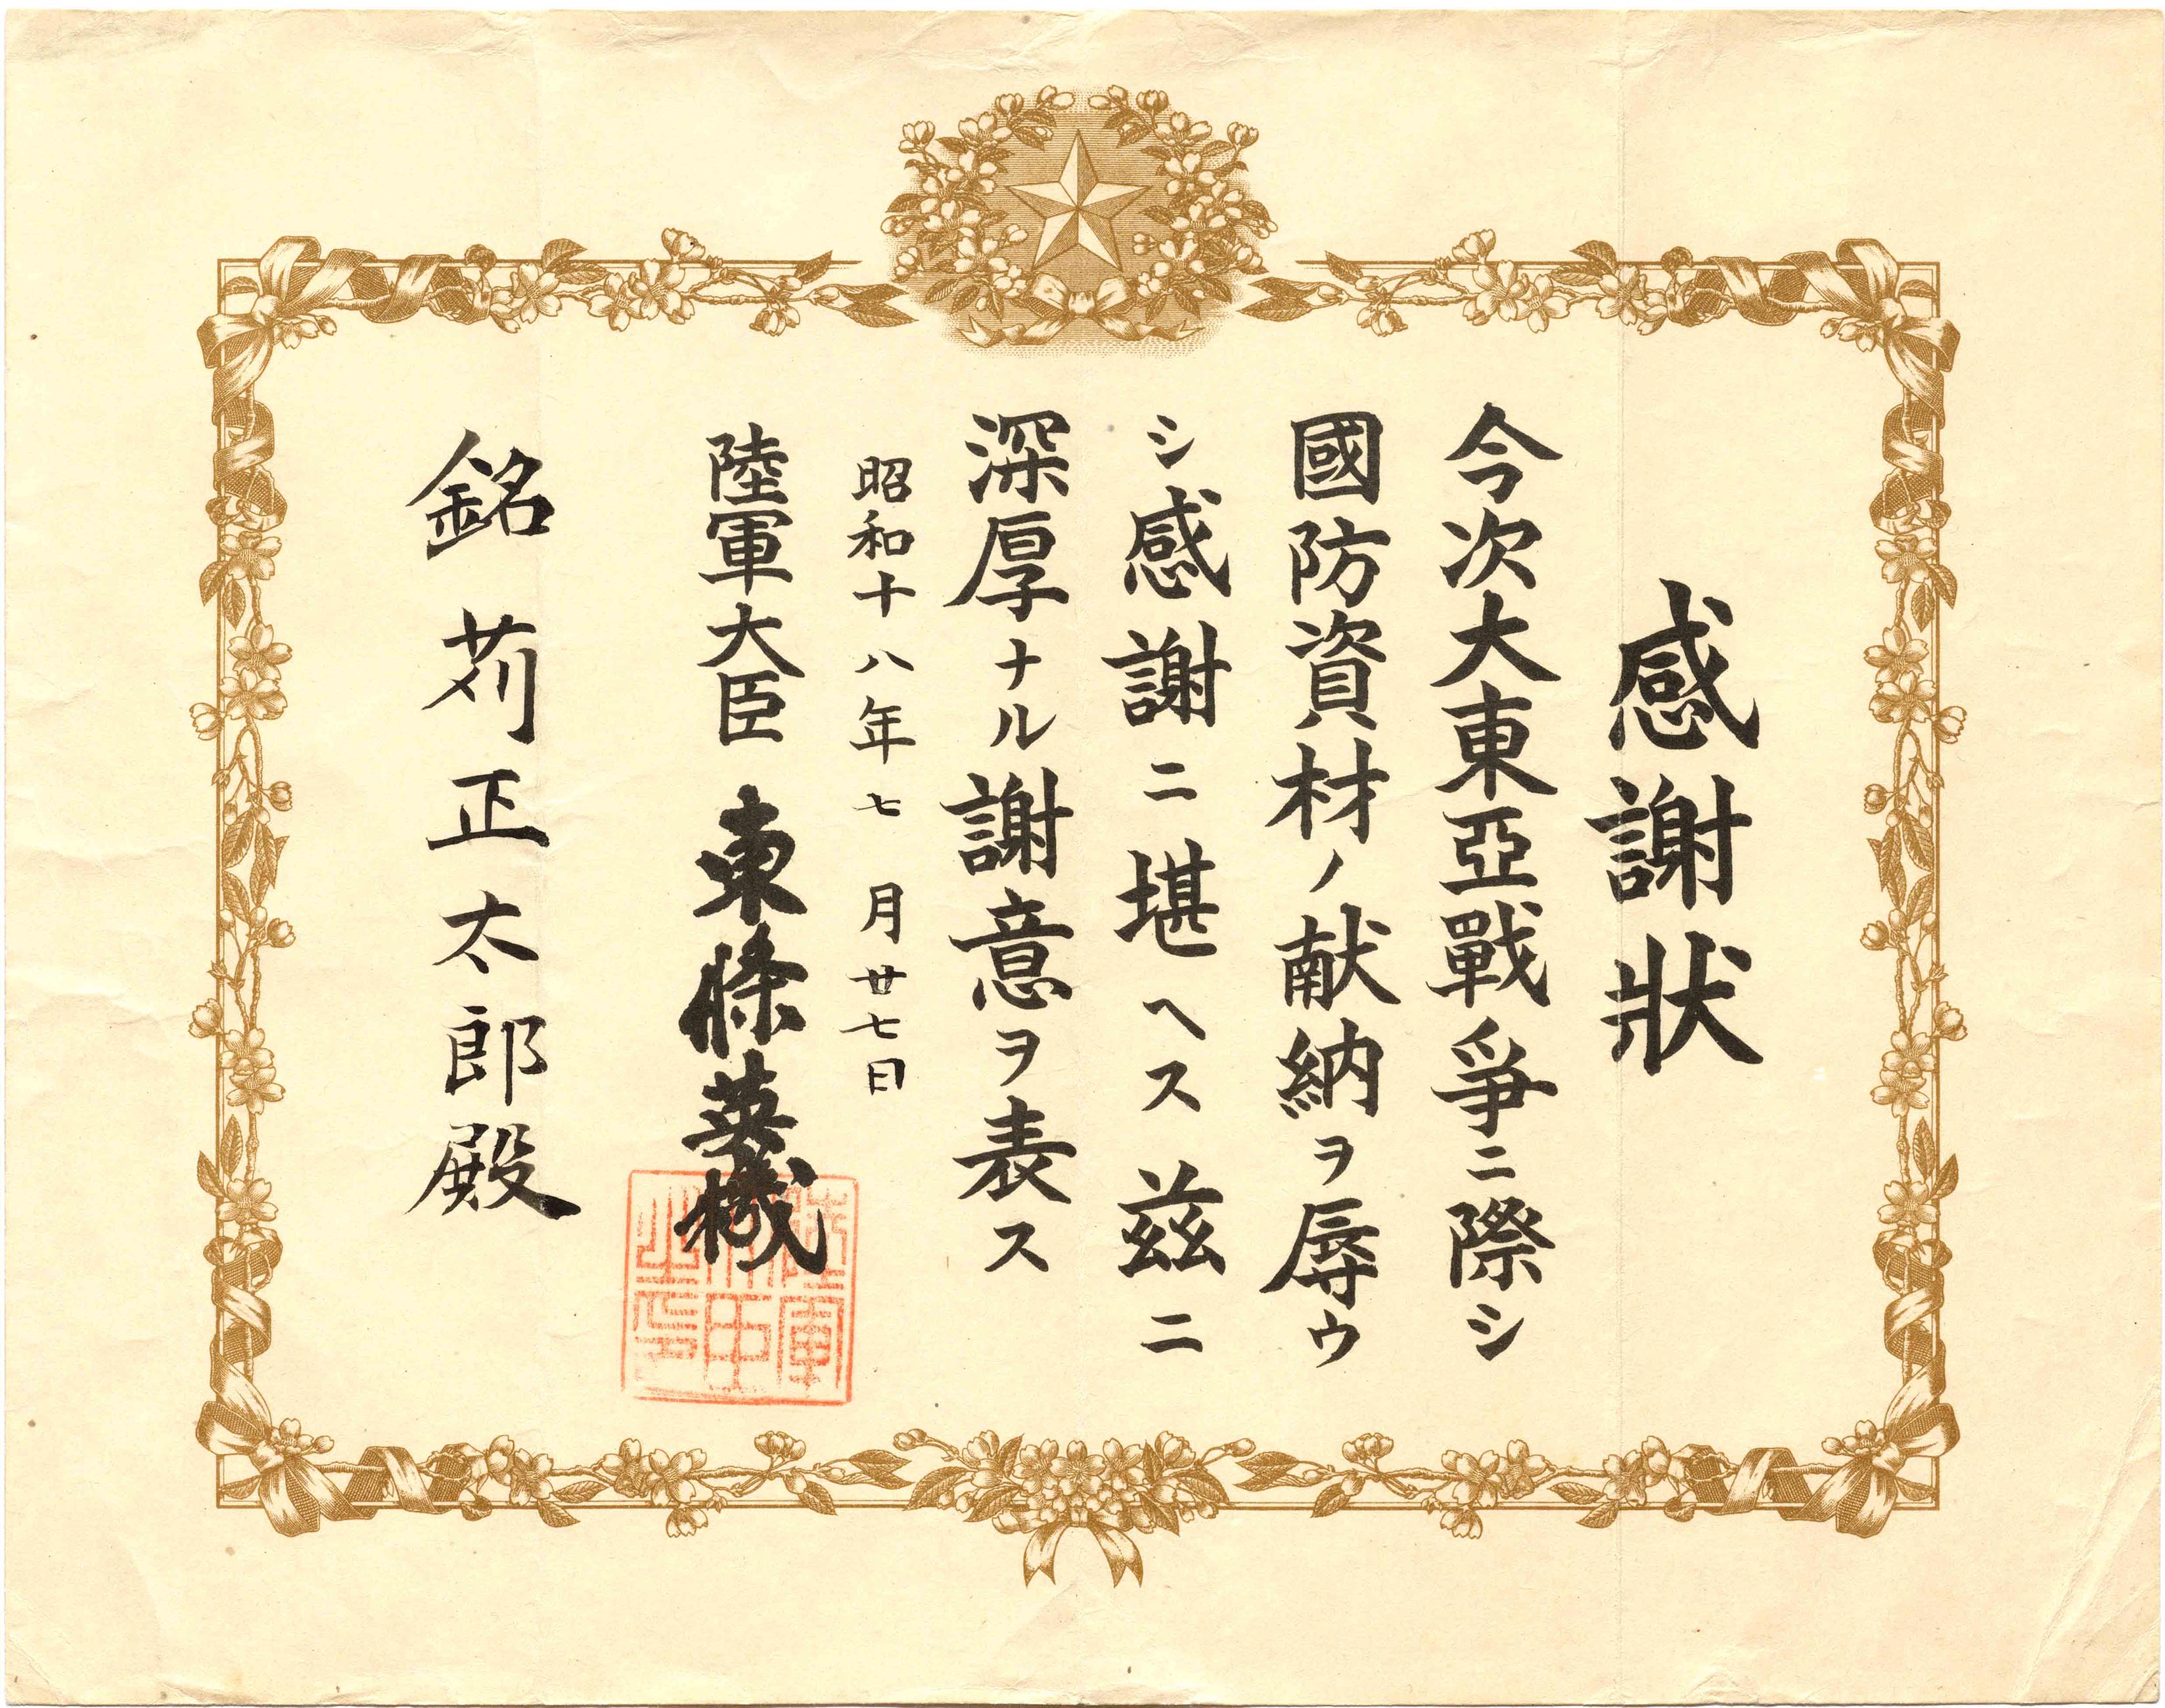 感謝狀
今次大東亞戰爭ニ際シ
國防資材ノ献納ヲ辱ウ
シ感謝ニ堪ヘス兹ニ
深厚ナル謝意ヲ表ス
昭和十八年七月廿七日
陸軍大臣 東條英機
銘苅正太郎殿